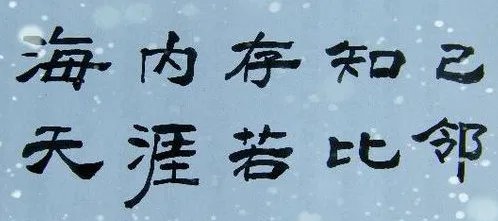 海内存知己
天涯若比邻